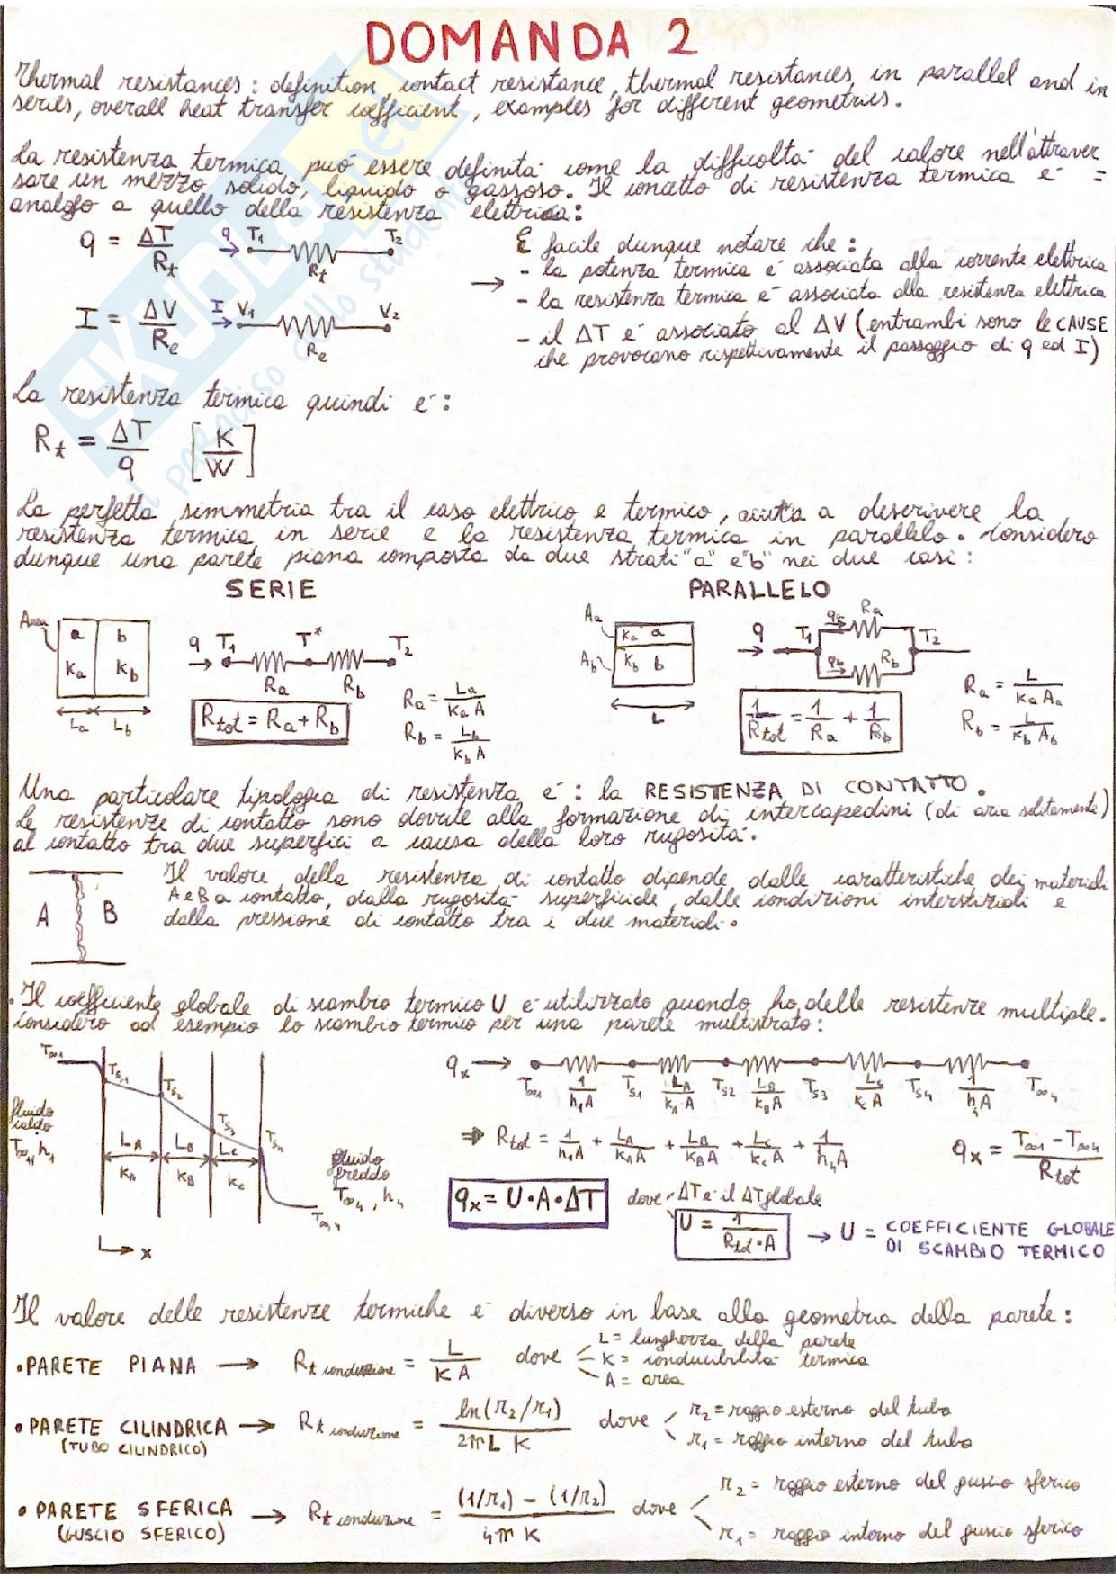 DOMANDA 2
Thermal resistances: definition, contact resistance, thermal resistances, in parallel and in
series, overall heat transfer coefficient, examples for different geometries.
La resistenza termica può essere definita come la difficoltà del calore nell'attraver
sare un mezzo solido, liquido o gassoso. Il concetto di resistenza termica è =
analogo a quello della resistenza elettrica:
q = ΔT/Rt q → T1 Rt T2
I = ΔV/Re I → V1 Re V2
→ È facile dunque notare che:
- la potenza termica è associata alla corrente elettrica
- la resistenza termica è associata alla resistenza elettrica
- il ΔT è associato al ΔV (entrambi sono le CAUSE
che provocano rispettivamente il passaggio di q ed I)
La resistenza termica quindi è:
Rt = ΔT/q [K/W]
La perfetta simmetria tra il caso elettrico e termico, aiuta a descrivere la
resistenza termica in serie e la resistenza termica in parallelo. Considero
dunque una parete piana composta da due strati "a" e "b" nei due casi:
SERIE
Area a b ka kb La Lb
q → T1 Ra T* Rb T2
Rtot = Ra + Rb
Ra = La/ka A
Rb = Lb/kb A
PARALLELO
Aa Ab ka a kb b L
q → T1 qa Ra qb Rb T2
1/Rtot = 1/Ra + 1/Rb
Ra = L/ka Aa
Rb = L/kb Ab
Una particolare tipologia di resistenza è: la RESISTENZA DI CONTATTO.
Le resistenze di contatto sono dovute alla formazione di intercapedini (di aria solitamente)
al contatto tra due superfici a causa della loro rugosità.
A B
Il valore della resistenza di contatto dipende dalle caratteristiche dei materiali
A e B a contatto, dalla rugosità superficiale, dalle condizioni interstiziali e
dalla pressione di contatto tra i due materiali.
• Il coefficiente globale di scambio termico U è utilizzato quando ho delle resistenze multiple.
Considero ad esempio lo scambio termico per una parete multistrato:
T∞1 Ts,1 Ts2 Ts3 Ts4
fluido
caldo
T∞1, h1
LA LB LC
kA kB kC
fluido
freddo
T∞4, h4
T∞,4
x
qx → T∞1 1/h1A Ts1 LA/kA A Ts2 LB/kB A Ts3 LC/kC A Ts4 1/h4A T∞4
⇒ Rtot = 1/h1A + LA/kA A + LB/kB A + LC/kC A + 1/h4A
qx = T∞1 - T∞4/Rtot
qx = U·A·ΔT
dove ΔT è il ΔT globale
U = 1/Rtot·A
→ U = COEFFICIENTE GLOBALE
DI SCAMBIO TERMICO
Il valore delle resistenze termiche è diverso in base alla geometria della parete:
• PARETE PIANA → Rt conduzione = L/KA dove
L = lunghezza della parete
K = conducibilità termica
A = area
• PARETE CILINDRICA → Rt conduzione = ln(r2/r1)/2πL K dove
(TUBO CILINDRICO)
r2 = raggio esterno del tubo
r1 = raggio interno del tubo
• PARETE SFERICA → Rt conduzione = (1/r1) - (1/r2)/4π K dove
(GUSCIO SFERICO)
r2 = raggio esterno del guscio sferico
r1 = raggio interno del guscio sferico